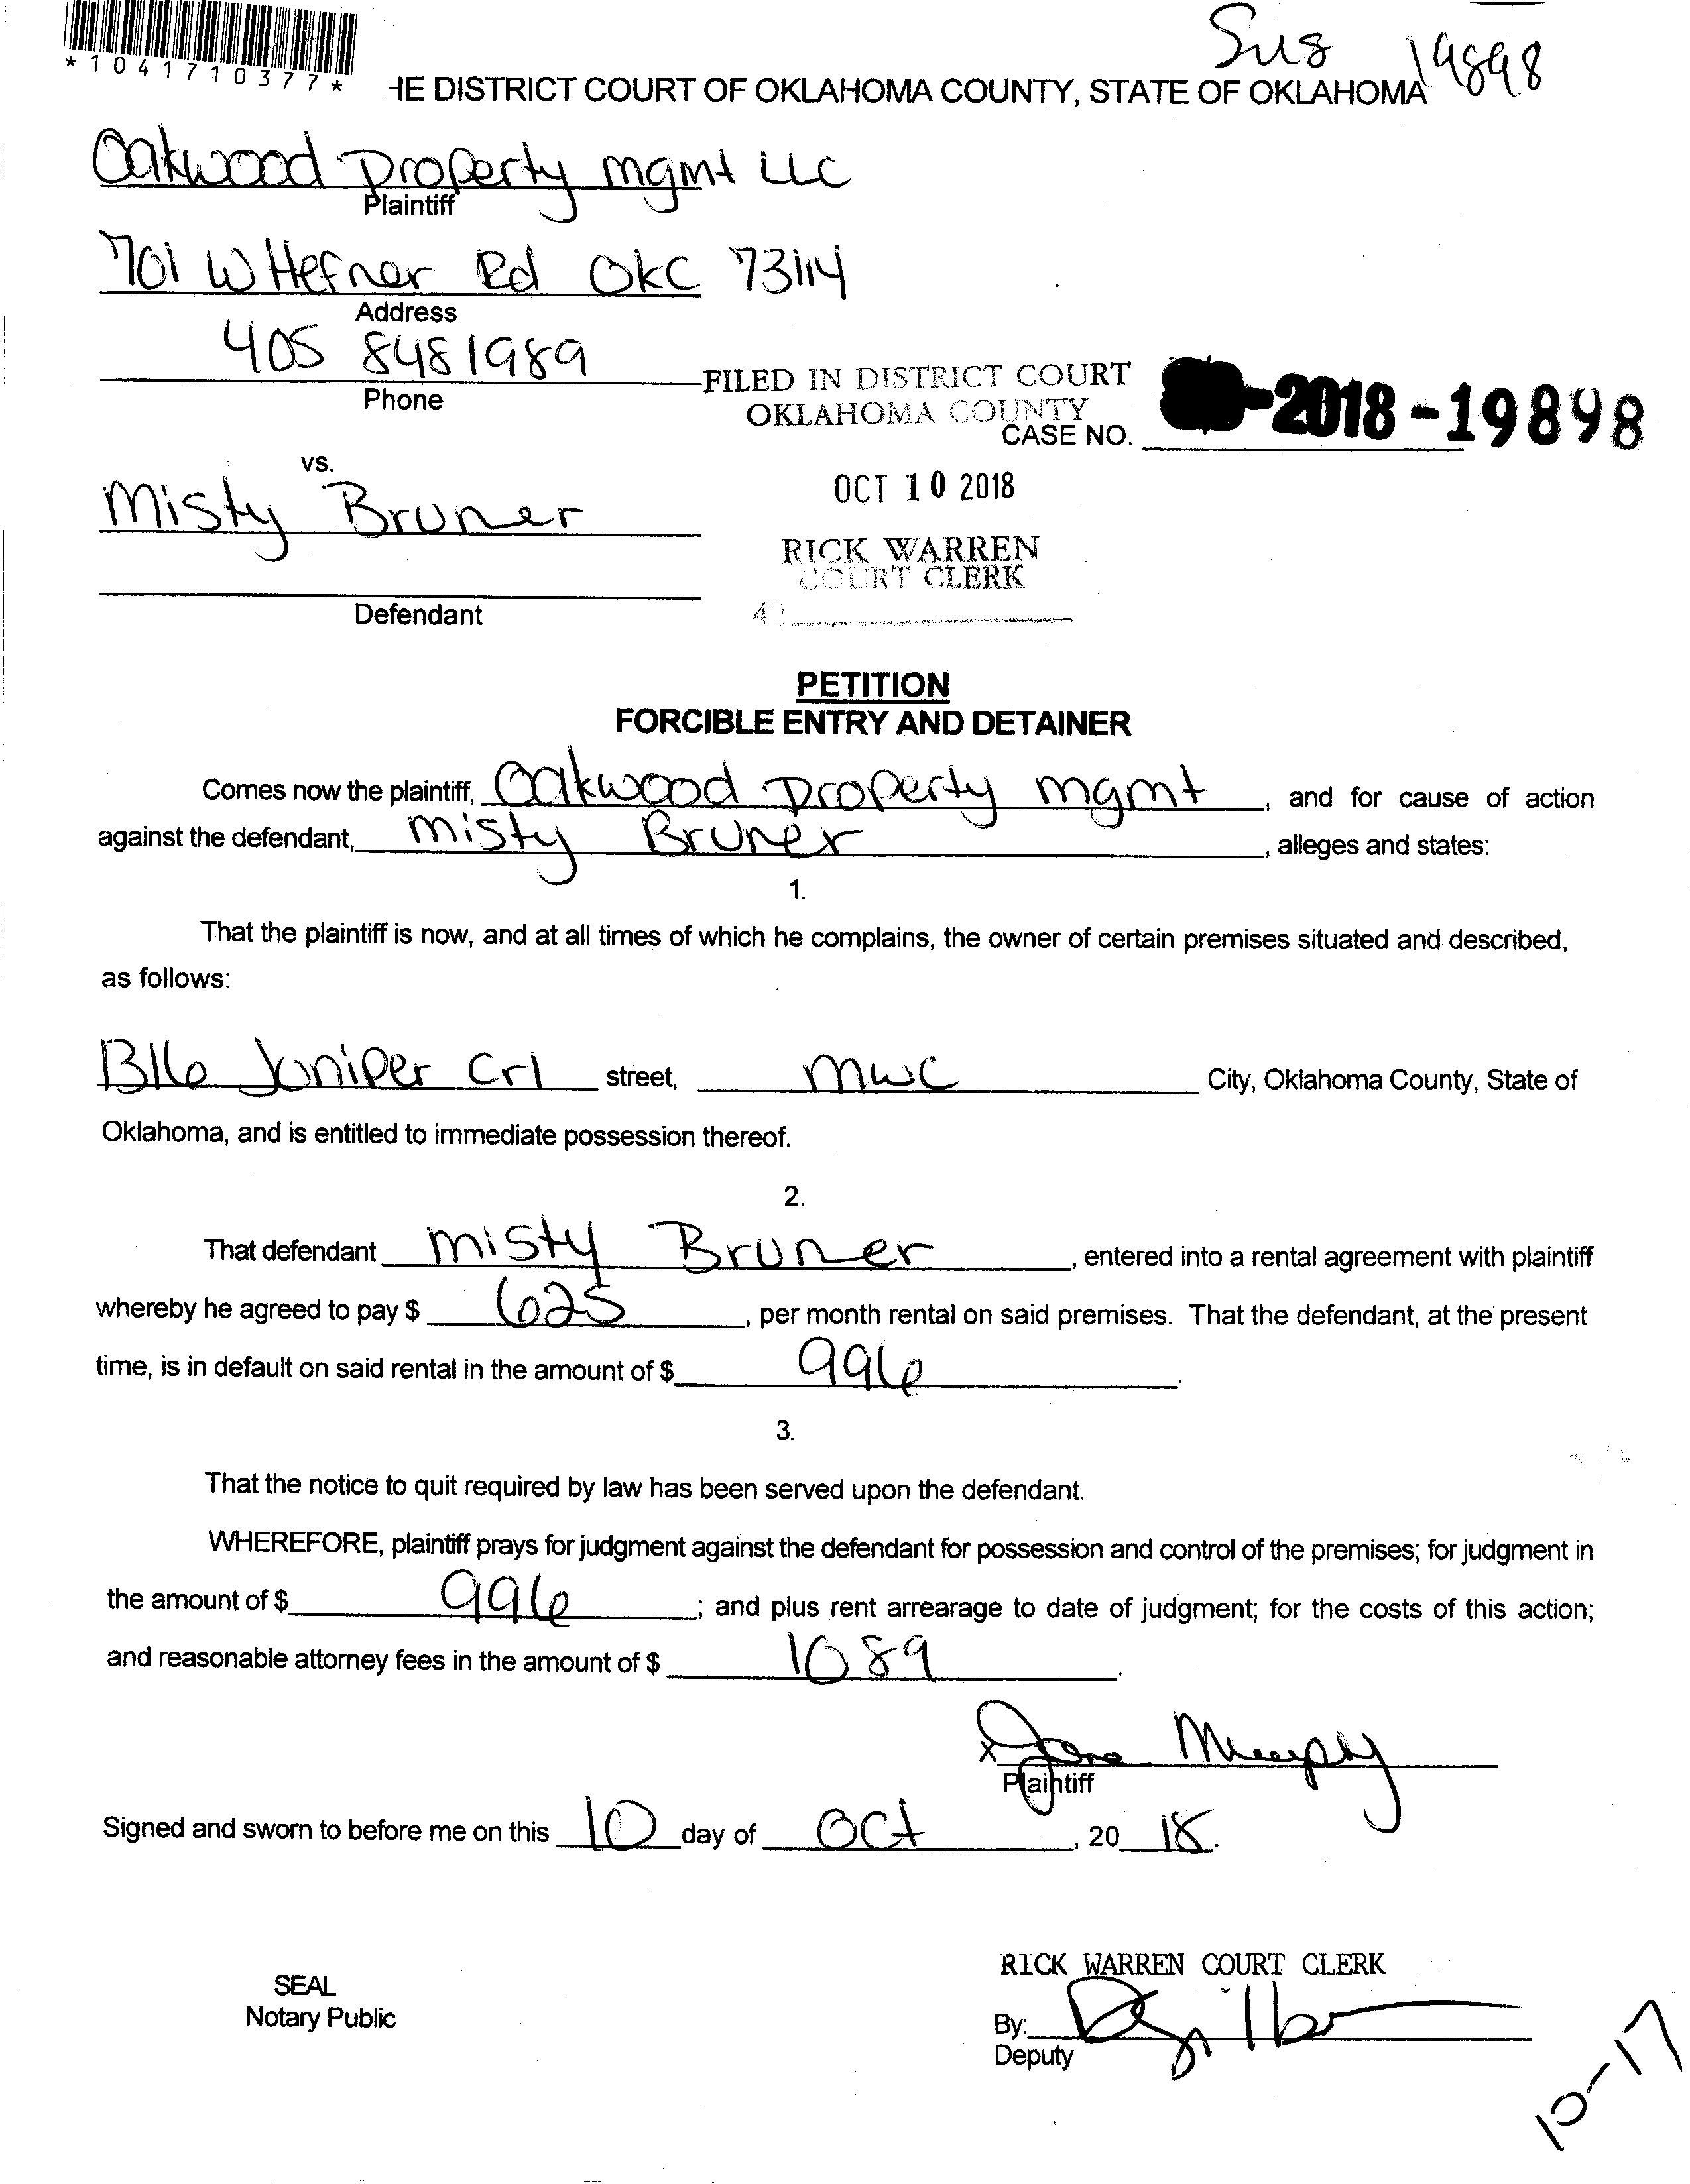 *1041710377*
Sus 19898
HE DISTRICT COURT OF OKLAHOMA COUNTY, STATE OF OKLAHOMA
Oakwood Property mgmt LLC
Plaintiff
701 W Hefner Rd OKC 73114
Address
405 8481989
Phone
FILED IN DISTRICT COURT
OKLAHOMA COUNTY
CASE NO. -2018-19898
vs.
OCT 10 2018
Misty Bruner
RICK WARREN
COURT CLERK
Defendant
PETITION
FORCIBLE ENTRY AND DETAINER
Comes now the plaintiff, Oakwood Property mgmt, and for cause of action
against the defendant, Misty Bruner, alleges and states:
1.
That the plaintiff is now, and at all times of which he complains, the owner of certain premises situated and described,
as follows:
1316 Juniper Crl street, mwc City, Oklahoma County, State of
Oklahoma, and is entitled to immediate possession thereof.
2.
That defendant Misty Bruner, entered into a rental agreement with plaintiff
whereby he agreed to pay $ 625, per month rental on said premises. That the defendant, at the present
time, is in default on said rental in the amount of $ 996.
3.
That the notice to quit required by law has been served upon the defendant.
WHEREFORE, plaintiff prays for judgment against the defendant for possession and control of the premises; for judgment in
the amount of $ 996; and plus rent arrearage to date of judgment; for the costs of this action;
and reasonable attorney fees in the amount of $ 1089.
x Murphy
Plaintiff
Signed and sworn to before me on this 10 day of Oct, 20 18.
RICK WARREN COURT CLERK
SEAL
Notary Public
By:
Deputy
10-17